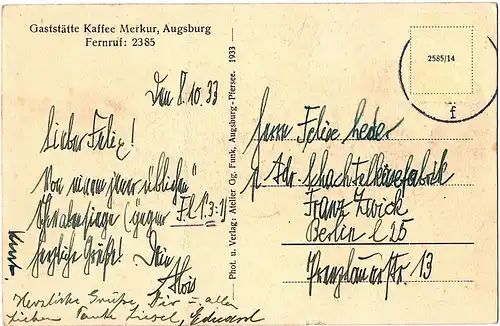 Gaststätte Kaffee Merkur, Augsburg
Fernruf: 2385
Den 8.10.33
Lieber Felix!
Von einem jener üblichen
Schwabensiege (gegen F.C. 1:3:1)
herzliche Grüße! Dein
Alois
Kurt.
Herzliche Grüße, Dir u. allen
Lieben Tante Liesel, Eduard
Phot. u. Verlag: Atelier Gg. Funk, Augsburg-Pfersee. 1933
2585/14
f
Herrn Felix Leder
p. Adr. Schachtelkäsefabrik
Franz Zwick
Berlin C 25
Prenzlauerstr. 13